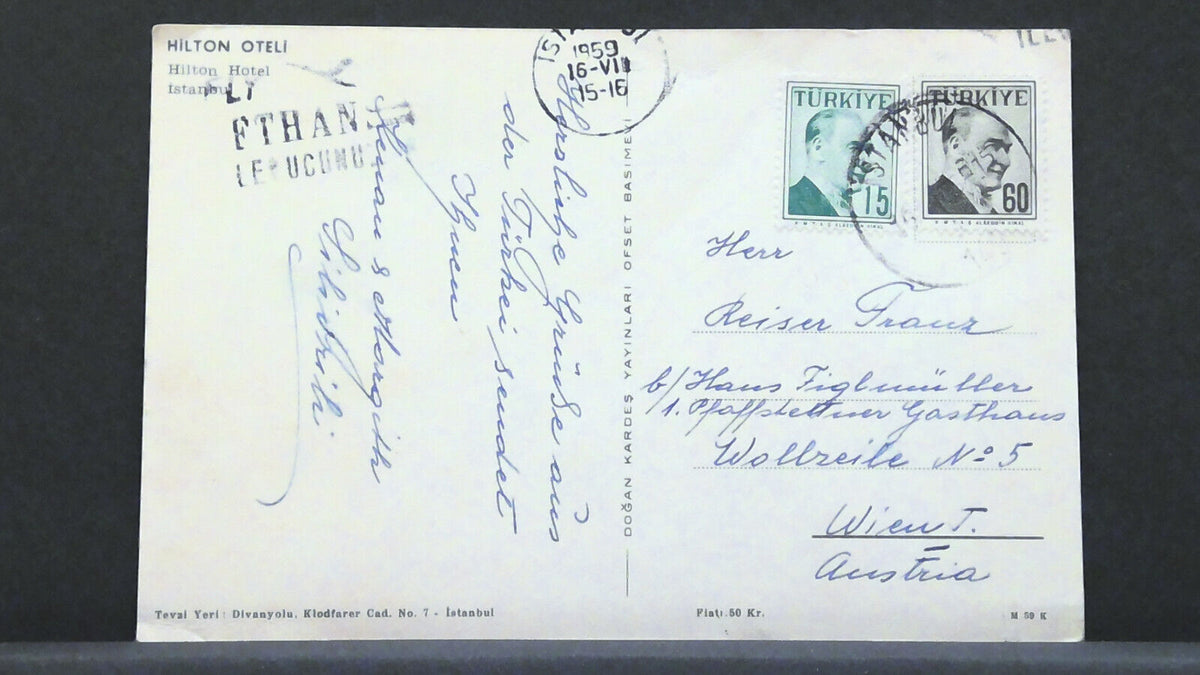 HİLTON OTELİ
Hilton Hotel
İstanbul
1959
16-VII
15-16
Herzliche Grüsse aus
der Türkei sendet
Ihnen
Kenan & Margith
DOĞAN KARDEŞ YAYINLARI OFSET BASIMEVİ
TÜRKİYE
15
TÜRKİYE
60
İSTANBUL
Herr
Reiser Franz
b/Hans Figlmüller
1. Pfaffstettner Gasthaus
Wollzeile No 5
Wien I.
Austria
Tevzi Yeri: Divanyolu, Klodfarer Cad. No. 7 - İstanbul
Fiatı 50 Kr.
M 59 K